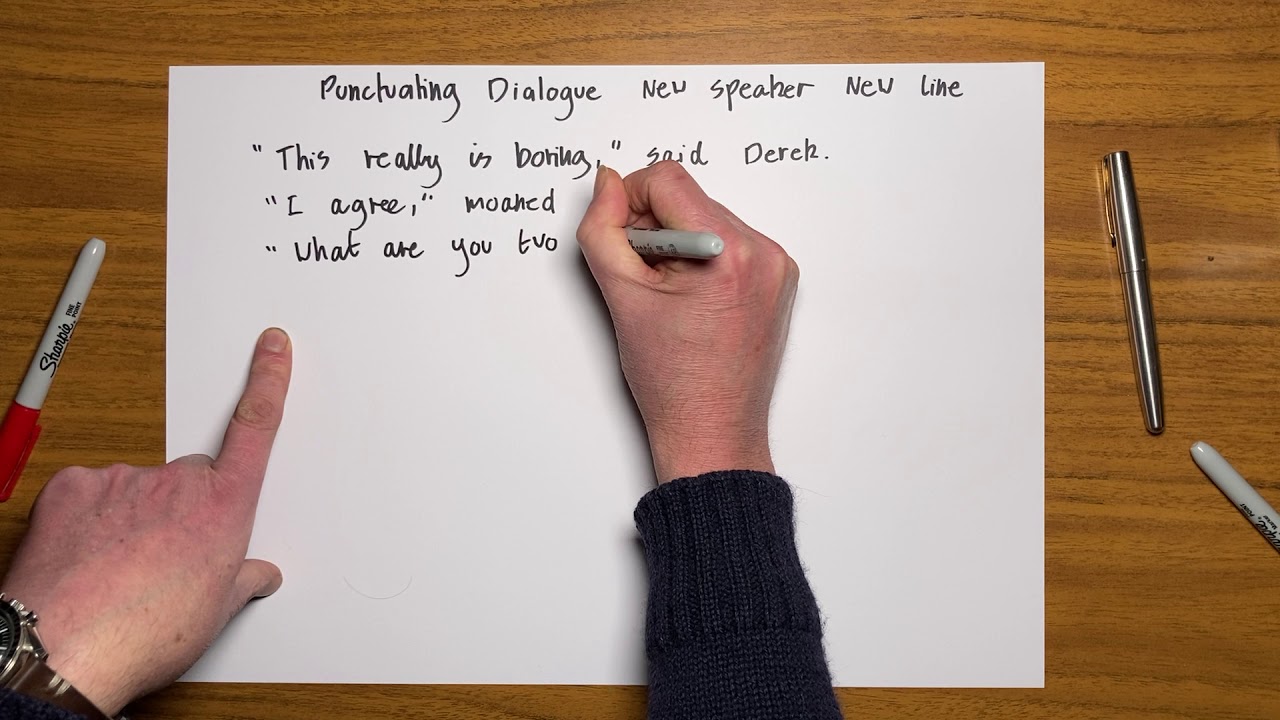 Punctuating Dialogue New speaker New line
"This really is boring," said Derek.
"I agree," moaned
"What are you two
Sharpie FINE POINT
Sharpie